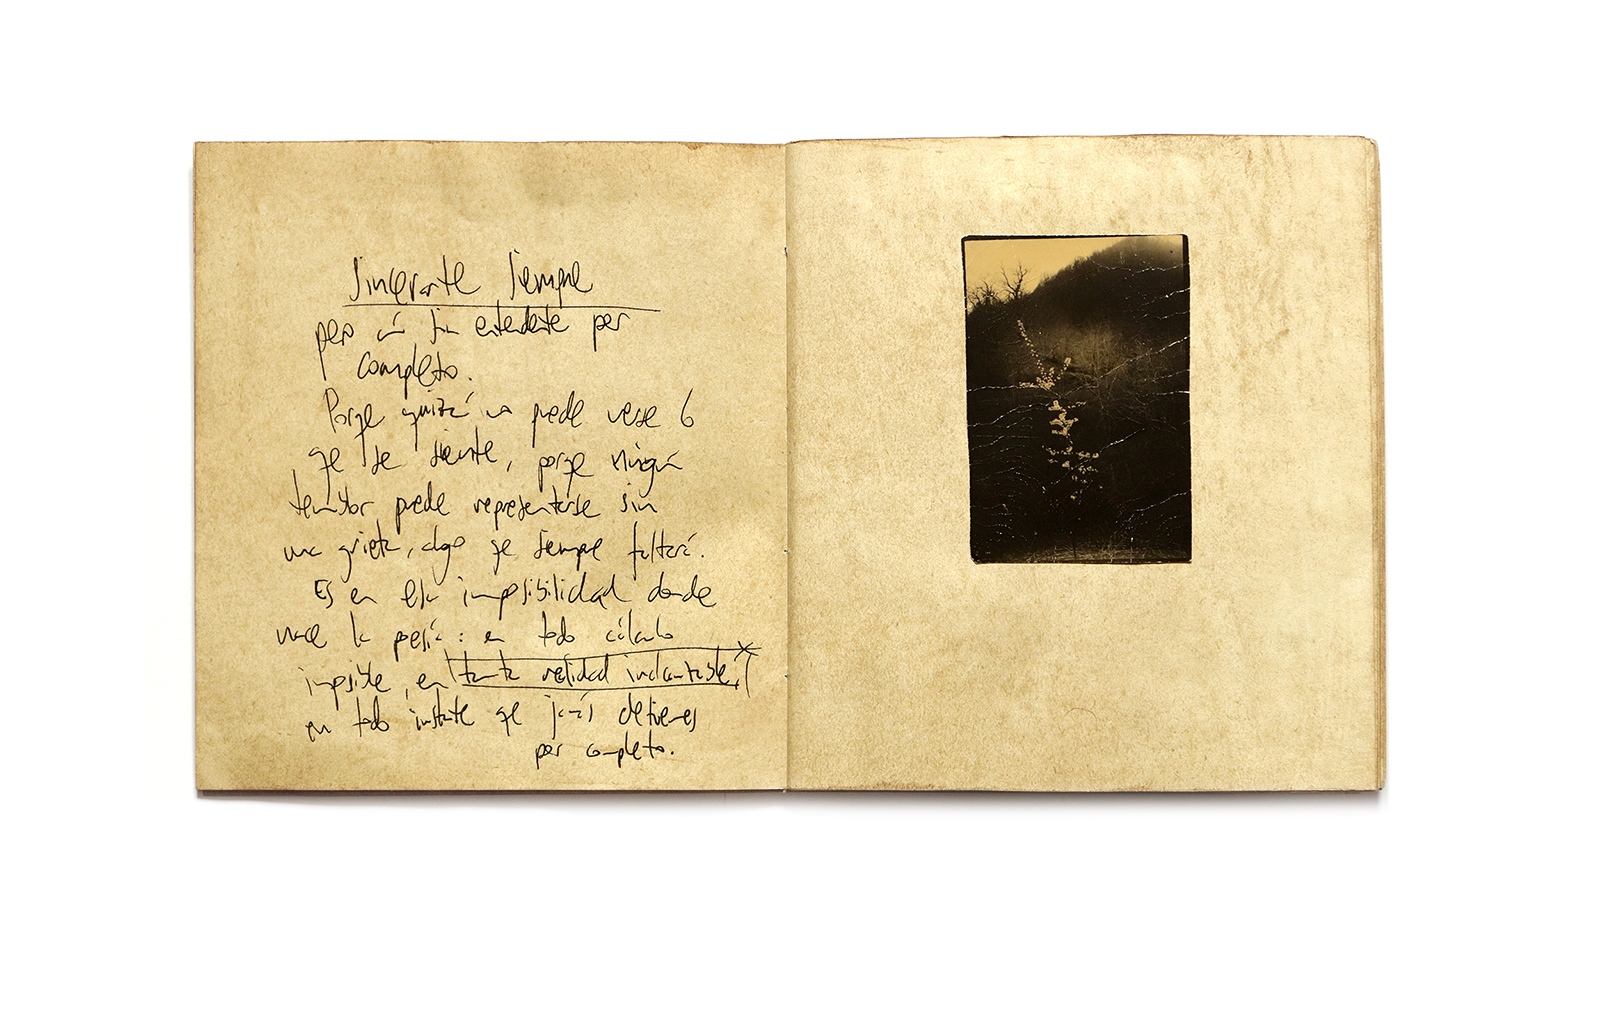 siempre
pero aún sin entenderte por
completo.
Porque quizá no puede verse lo
que se siente, porque ningún
temblor puede representarse sin
una grieta, algo que siempre faltará.
Es en esta imposibilidad donde
nace la poesía: en todo cálculo
imposible, en tanta realidad
en todo instante que jamás detienes
por completo.